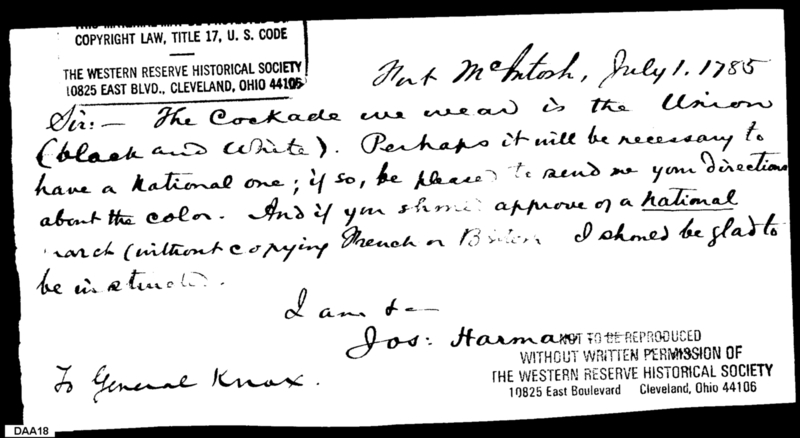 COPYRIGHT LAW, TITLE 17, U. S. CODE
THE WESTERN RESERVE HISTORICAL SOCIETY
10825 EAST BLVD., CLEVELAND, OHIO 44106
Fort McIntosh, July 1. 1785
Sir:— The Cockade we wear is the Union
(black and White). Perhaps it will be necessary to
have a National one; if so, be pleased to send me your directions
about the color. And if you approve of a National
march (without copying French or I should be glad to
be instructed.
I am &—
Jos: Harma
NOT TO BE REPRODUCED
WITHOUT WRITTEN PERMISSION OF
THE WESTERN RESERVE HISTORICAL SOCIETY
10825 East Boulevard Cleveland, Ohio 44106
To General Knox.
DAA18